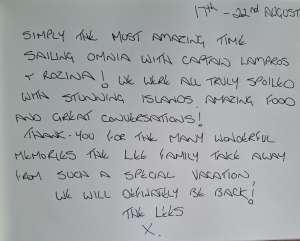 17th - 22nd AUGUST
SIMPLY THE MOST AMAZING TIME
SAILING OMNIA WITH CAPTAIN LAMPROS
& ROZINA! WE WERE ALL TRULY SPOILED
WITH STUNNING ISLANDS, AMAZING FOOD
AND GREAT CONVERSATIONS!
THANK-YOU FOR THE MANY WONDERFUL
MEMORIES THE LEE FAMILY TAKE AWAY
FROM SUCH A SPECIAL VACATION!
WE WILL DEFINATELY BE BACK!
THE LEES
X.